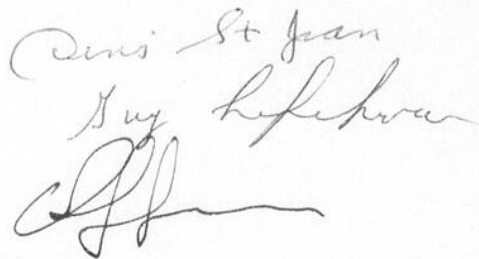 Denis St Jean
Guy Lefebvre